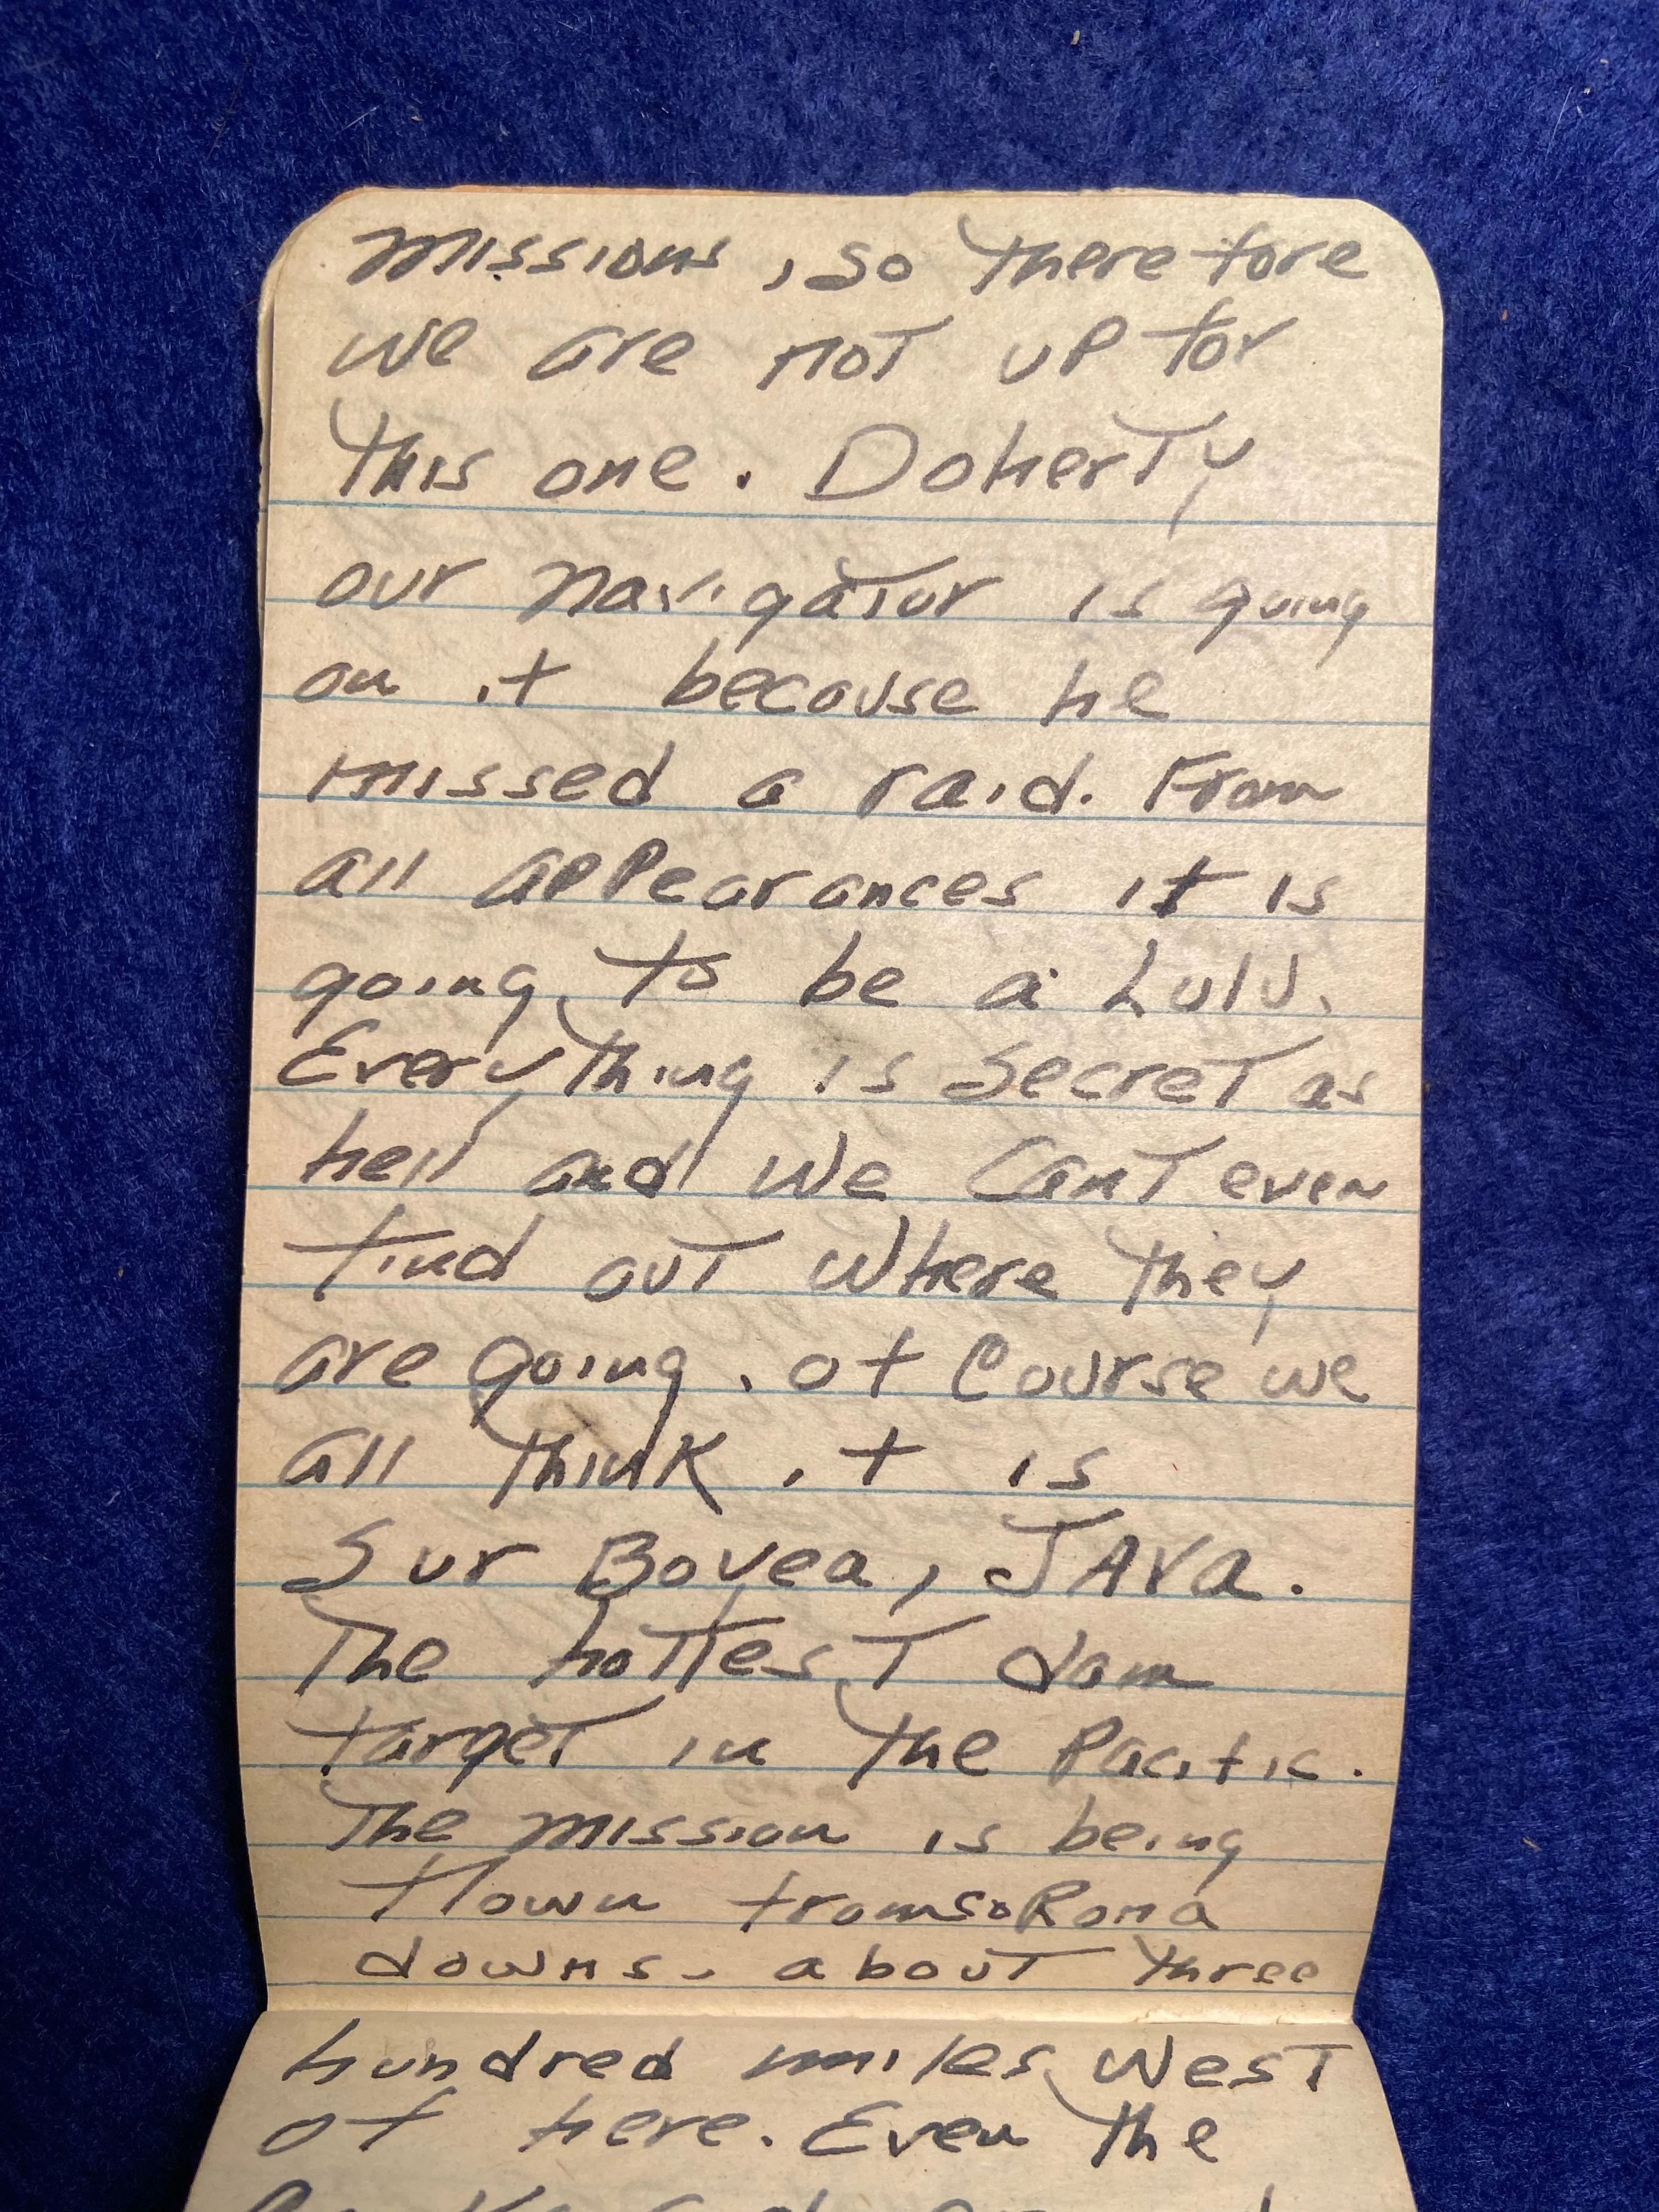 missions, so therefore
we are not up for
this one. Doherty
our navigator is going
on it because he
missed a raid. From
all appearances it is
going to be a Lulu.
Everything is secret as
hell and we cant even
find out where they
are going. of Course we
all think it is
Sur Bovea, JAva.
The hottest dam
target in the Pacific.
The mission is being
flown from Corona
downs. about three
hundred miles West
of here. Even the